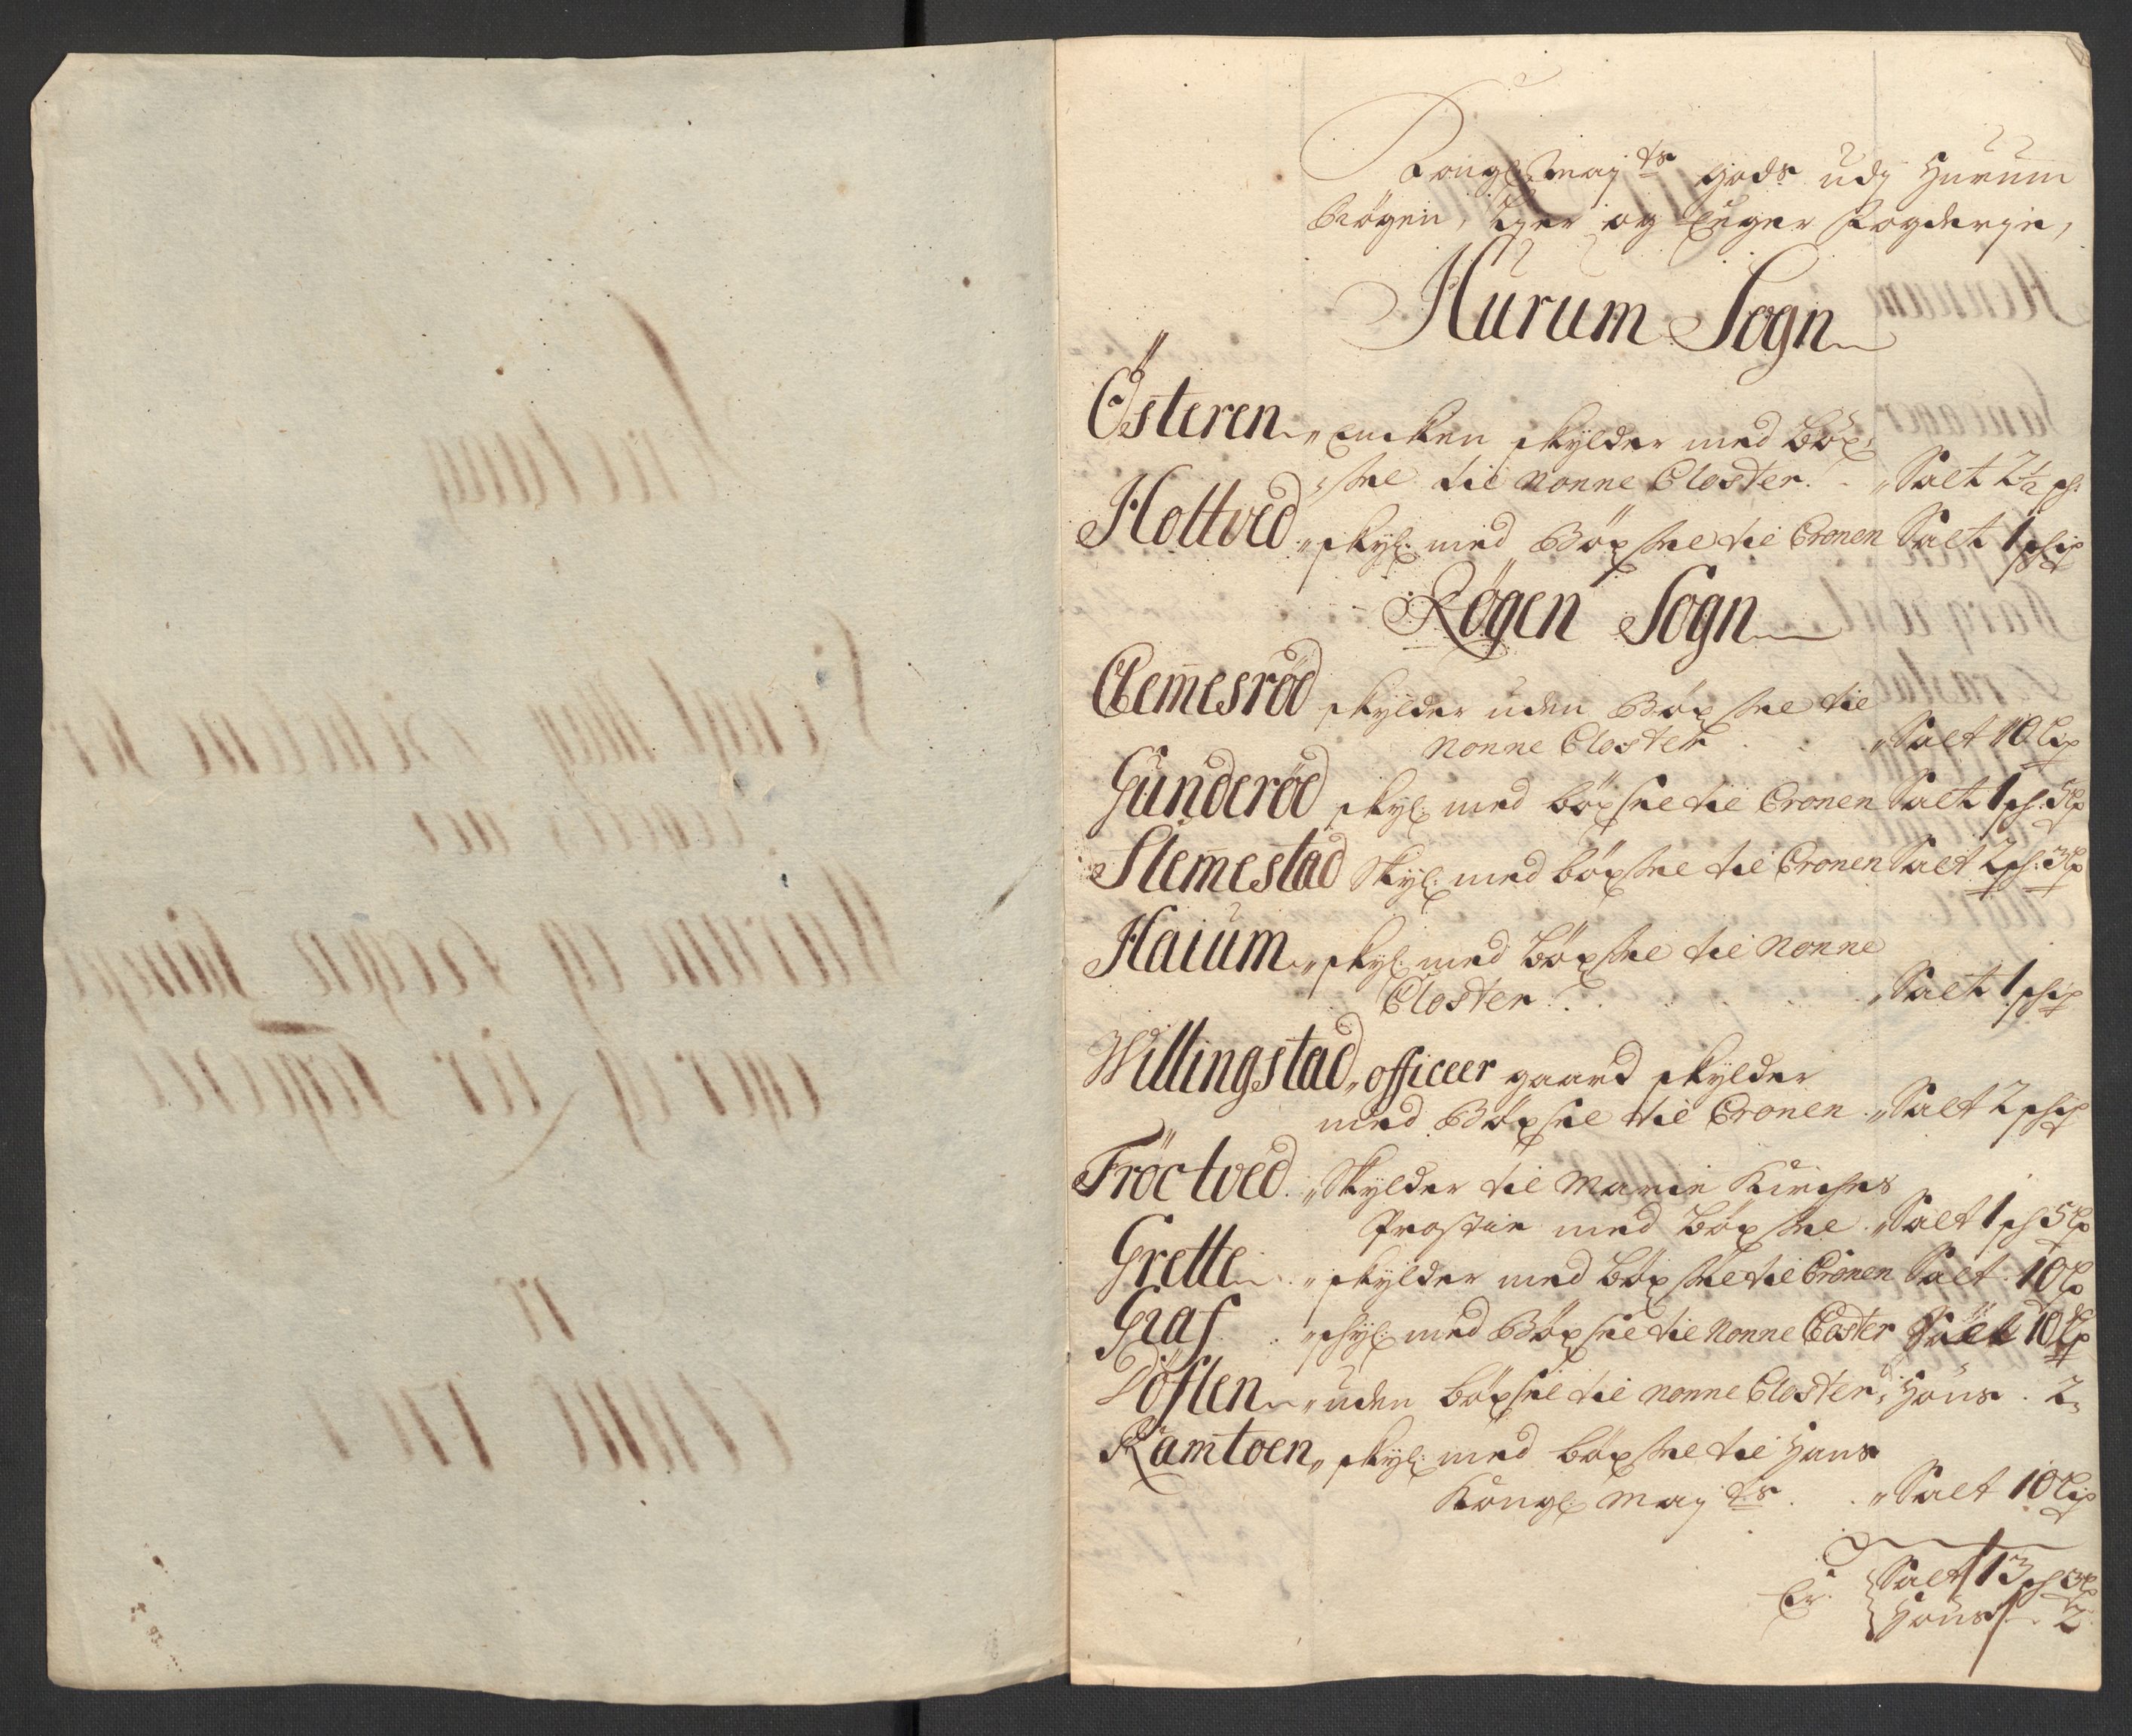 Kongl: May:ts gods udj Hurum
Røgen, Eger og Liger Fogderje,
Hurum Sogn
Österen, Encken skylder med Böx-
sle til Nonne Closter. Salt 2½ ps:
Hottved, skyl: med Böxsle til Cronen Salt 1 psip
Røgen Sogn
Clem̃esröd skylder uden Böxsle til
Nonne Closter Salt 10 Lip
Gunderöd skyl: med böxsle til Cronen Salt 1 ps: 5 Lp
Slem̃estad Skyl: med böxsle til Cronen Salt 2 ps: 3 Lp
Haium, skyl: med böxsle til Nonne
Closter. Salt 1 psip
Willingstad, officeer gaard skylder
med Böxsle til Cronen. Salt 2 psip
Tröctved. Skylder til Marie Kirches
Prostie med böxsle. Salt 1 ps 5 Lp
Grette. skylder med böxsle til Cronen Salt 10 Lp
Graf. skyl: med Böxsle til Nonne Closter Salt 10 Lp
Döflen, uden böxsle til Nonne Closter, Höns. 2
Ram̃toen, skyl: med böxsle til Hans
Kongl: May:ts. Salt 10 Lip
Er. Salt 13 ps 3 Lp
Höns 2